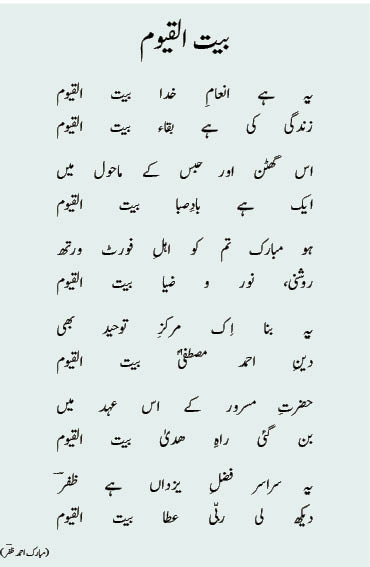 بیت القیوم
یہ ہے انعامِ خدا بیت القیوم
زندگی کی ہے بقاء بیت القیوم
اس گھٹن اور حبس کے ماحول میں
ایک ہے بادِصبا بیت القیوم
ہو مبارک تم کو اہلِ فورٹ ورتھ
روشنی، نور و ضیا بیت القیوم
یہ بنا اِک مرکزِ توحید بھی
دینِ احمد مصطفیٰؐ بیت القیوم
حضرتِ مسرور کے اس عہد میں
بن گئی راہِ ھدیٰ بیت القیوم
یہ سراسر فضلِ یزداں ہے ظفرؔ
دیکھ لی ربّی عطا بیت القیوم
(مبارک احمد ظفرؔ)